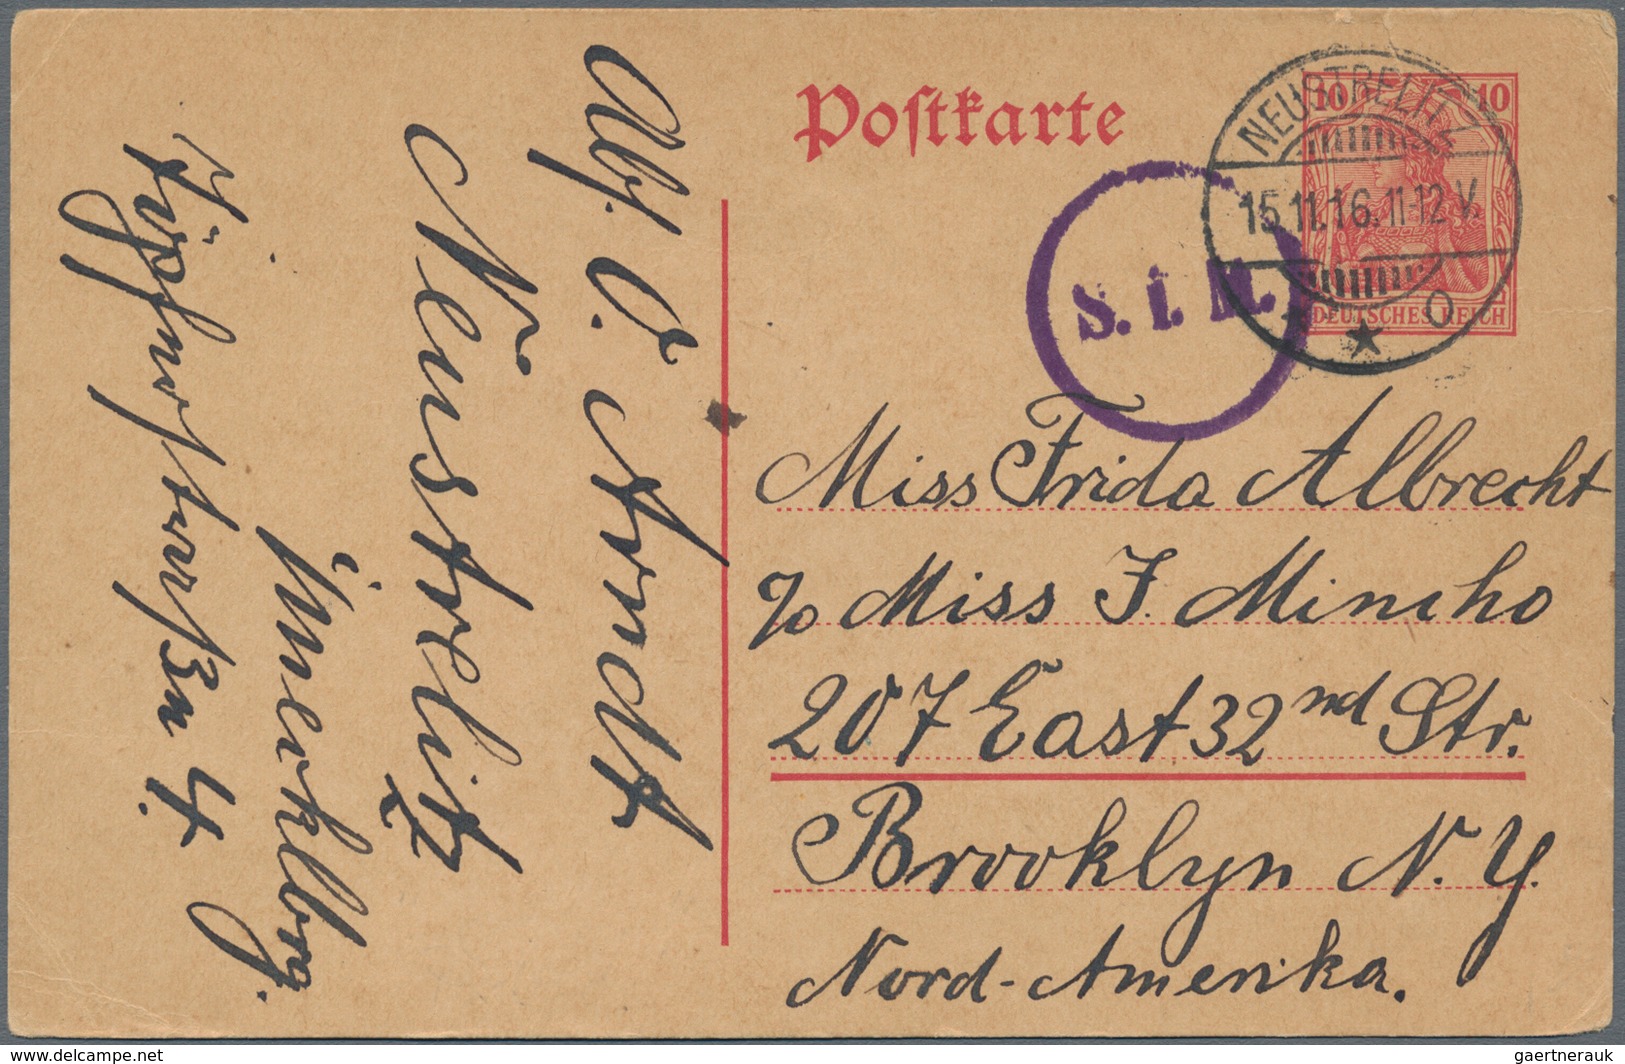 Postkarte
10 10
DEUTSCHES REICH
NEUSTRELITZ
15.11.16.11-12 V.
S. I. M.
Miss Frida Albrecht
c/o Miss F. Mincho
207 East 32nd Str.
Brooklyn N. Y.
Nord-Amerika.
Abs. O. Arndt
Neustrelitz
i/Mecklbrg.
4.
www.delcampe.net
gaertnerauk